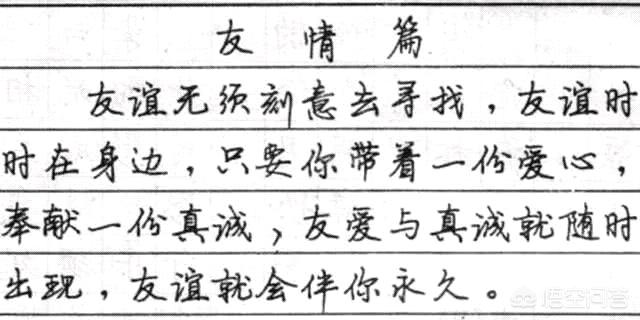 友情篇
友谊无须刻意去寻找，友谊时
时在身边，只要你带着一份爱心，
奉献一份真诚，友爱与真诚就随时
出现，友谊就会伴你永久。
悟空问答